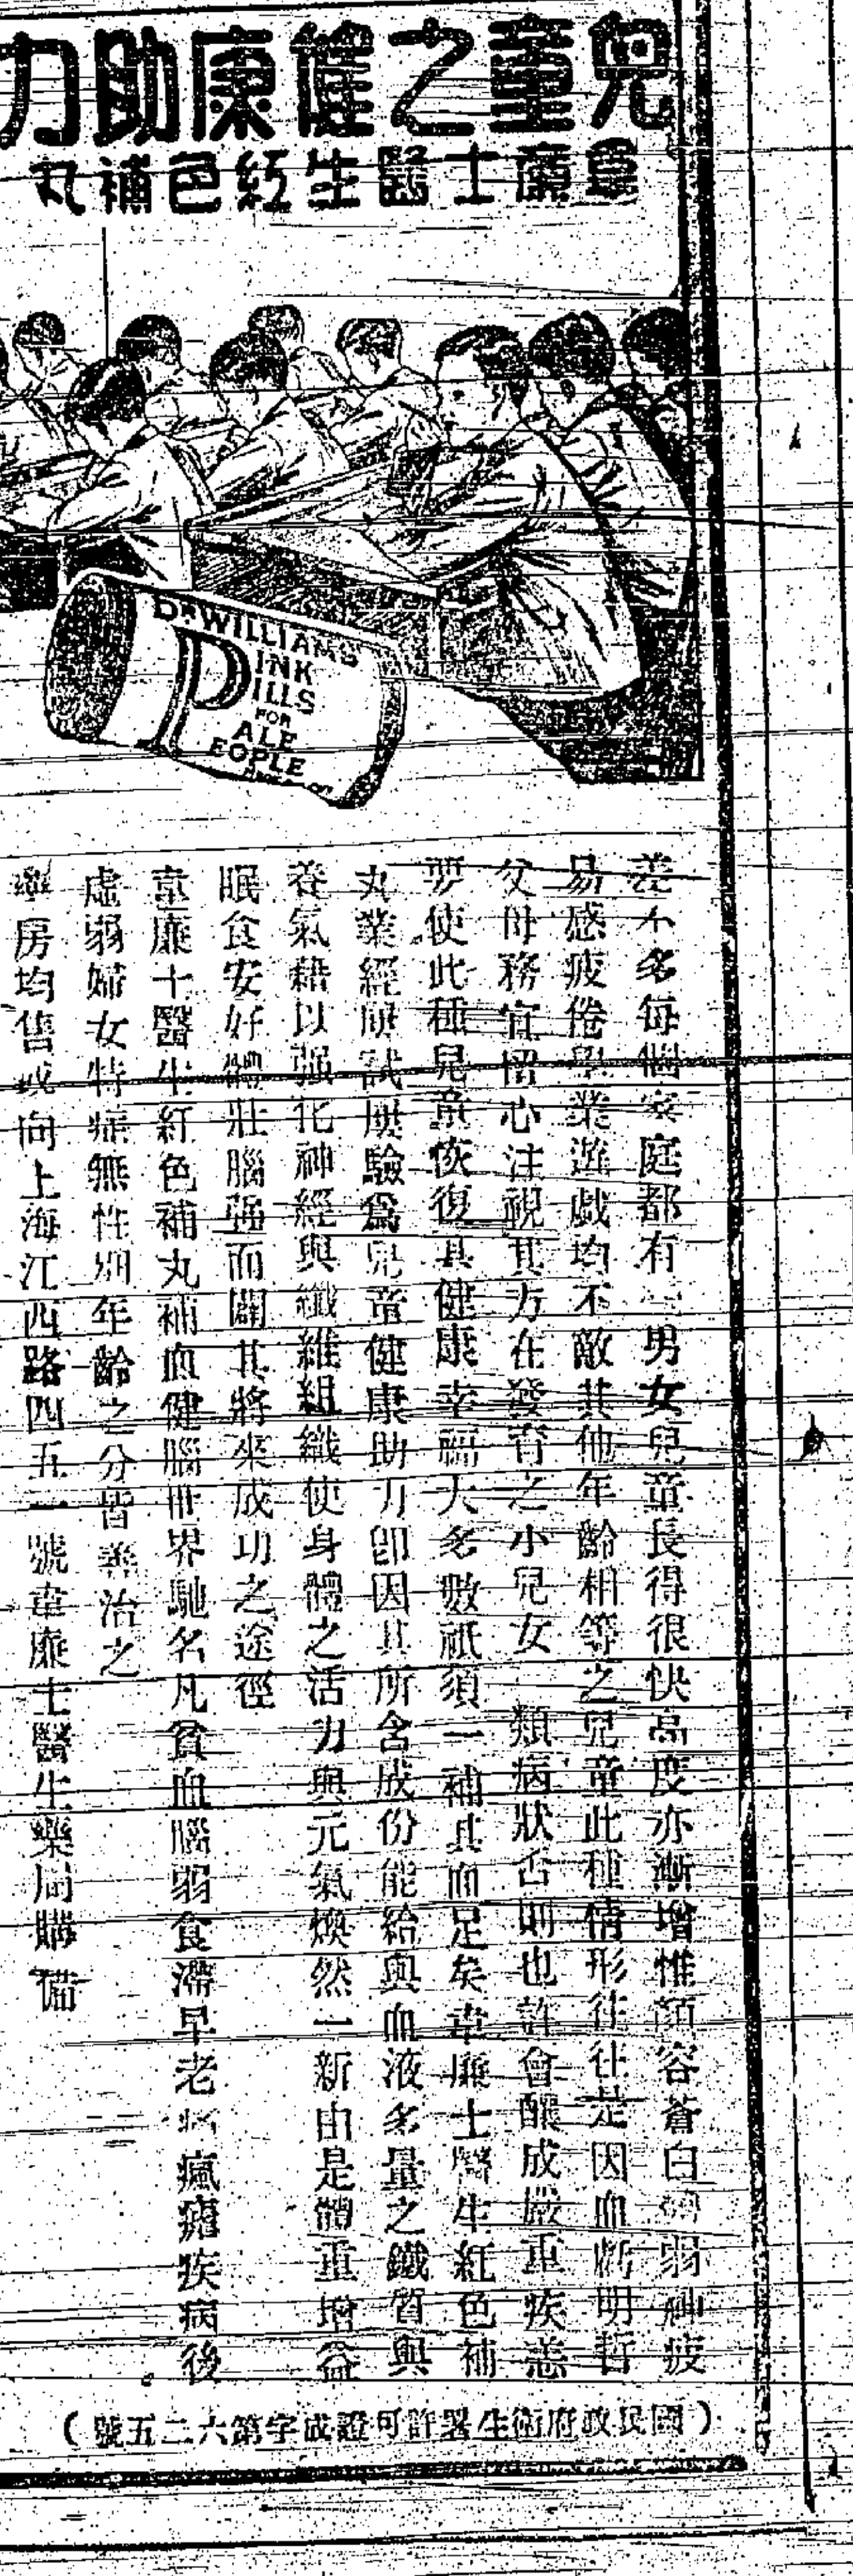 兒童之健康助力
韋廉士醫生紅色補丸
DR WILLIAMS
PINK
PILLS
FOR
PALE
PEOPLE
差不多每個家庭都有一男女兒童長得很快高度亦漸增惟顏容蒼白弱神疲
易感疲倦學業遊戲均不敵其他年齡相等之兒童此種情形往往是因血虧明哲
父母務宜留心注視其方在發育之小兒女類病狀否則也許會釀成嚴重疾恙
要使此種兒童恢復其健康幸福大多數祇須一補其血足矣韋廉士醫生紅色補
丸業經屢試屢驗為兒童健康助力卽因其所含成份能給與血液多量之鐵質與
養氣藉以强化神經與纖維組織使身體之活力與元氣煥然一新由是體重增益
眠食安好體壯腦强而闢其將來成功之途徑
韋廉士醫生紅色補丸補血健腦世界馳名凡貧血腦弱食滯早老瘋癱疾病後
虛弱婦女特症無性別年齡之分皆善治之
藥房均售或向上海江西路四五一號韋廉士醫生藥局購備
（國民政府衛生署許可證成字第六二五號）